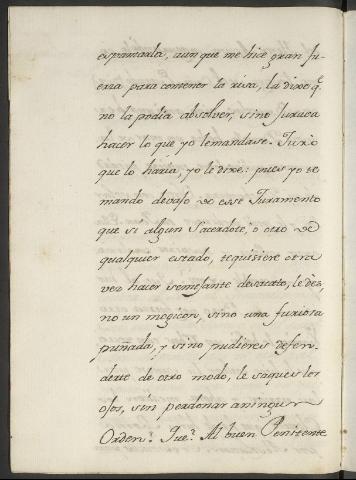 espantarla, aunque me hice gran fu-
erza para contener la risa, la dixe q.e
no la podia absolver, sino Juraua
hacer lo que yo lemandase. Juró
que lo haria, yo le dixe: pues yo te
mando debajo de esse Juramento
que si algun Sacerdote, o otro de
qualquier estado, tequisiere otra
vez hacer semejante desacato, le dès,
no un mogicon, sino una furiosa
puñada, y sino pudieres defen-
derte de otro modo, le saques los
ojos, sin perdonar aningun
Orden. Al buen Penitente